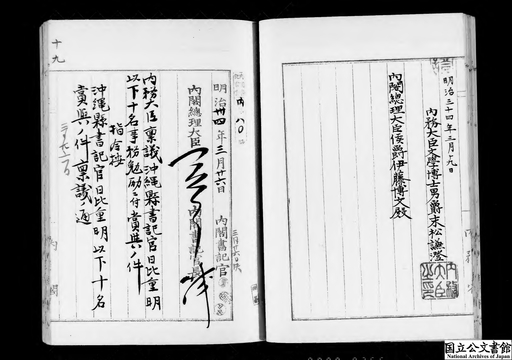 明治三十四年三月十九日
內務大臣文學博士男爵末松謙澄
內閣總理大臣侯爵伊藤博文殿
內務大臣
十九
內八〇
明治卅四年三月廿六日
內閣總理大臣
內閣書記官長
內閣書記官
內務大臣稟議沖縄縣書記官日比重明
以下十名事務勉励ニ付賞與ノ件
指令按
沖縄縣書記官日比重明以下十名
賞與ノ件稟議ノ通
內閣
国立公文書館
National Archives of Japan